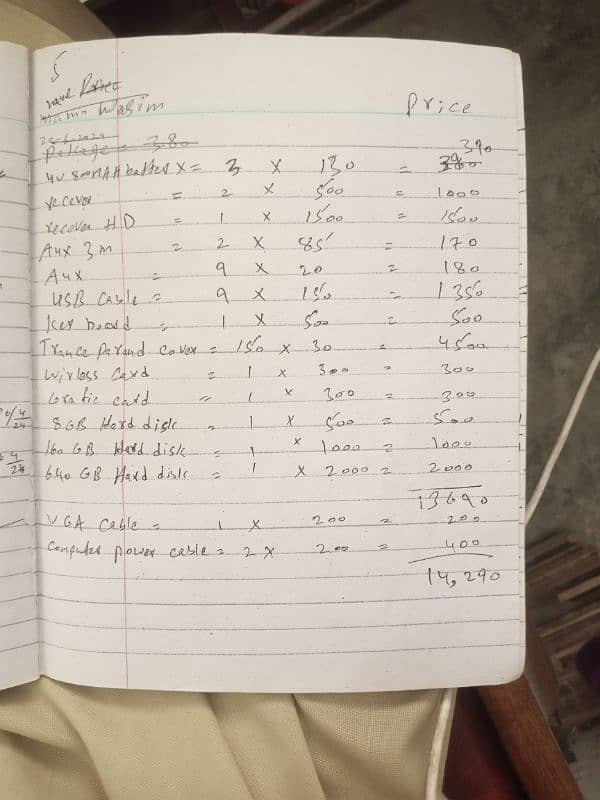 5
Wasim
Price
Package = 380
390
4V 800MAH batter X = 3 X 130 = 380
recever = 2 X 500 = 1000
recever HD = 1 X 1500 = 1500
Aux 3m = 2 X 85 = 170
Aux = 9 X 20 = 180
USB Cable = 9 X 150 = 1350
Key board = 1 X 500 = 500
Trance Parand cover = 150 X 30 = 4500
Wirless Card = 1 X 300 = 300
Grafic card = 1 X 300 = 300
8GB Hard disk = 1 X 500 = 500
160 GB Hard disk = 1 X 1000 = 1000
640 GB Hard disk = 1 X 2000 = 2000
13690
VGA Cable = 1 X 200 = 200
Computer power cable = 2 X 200 = 400
14,290
4/24
4/24